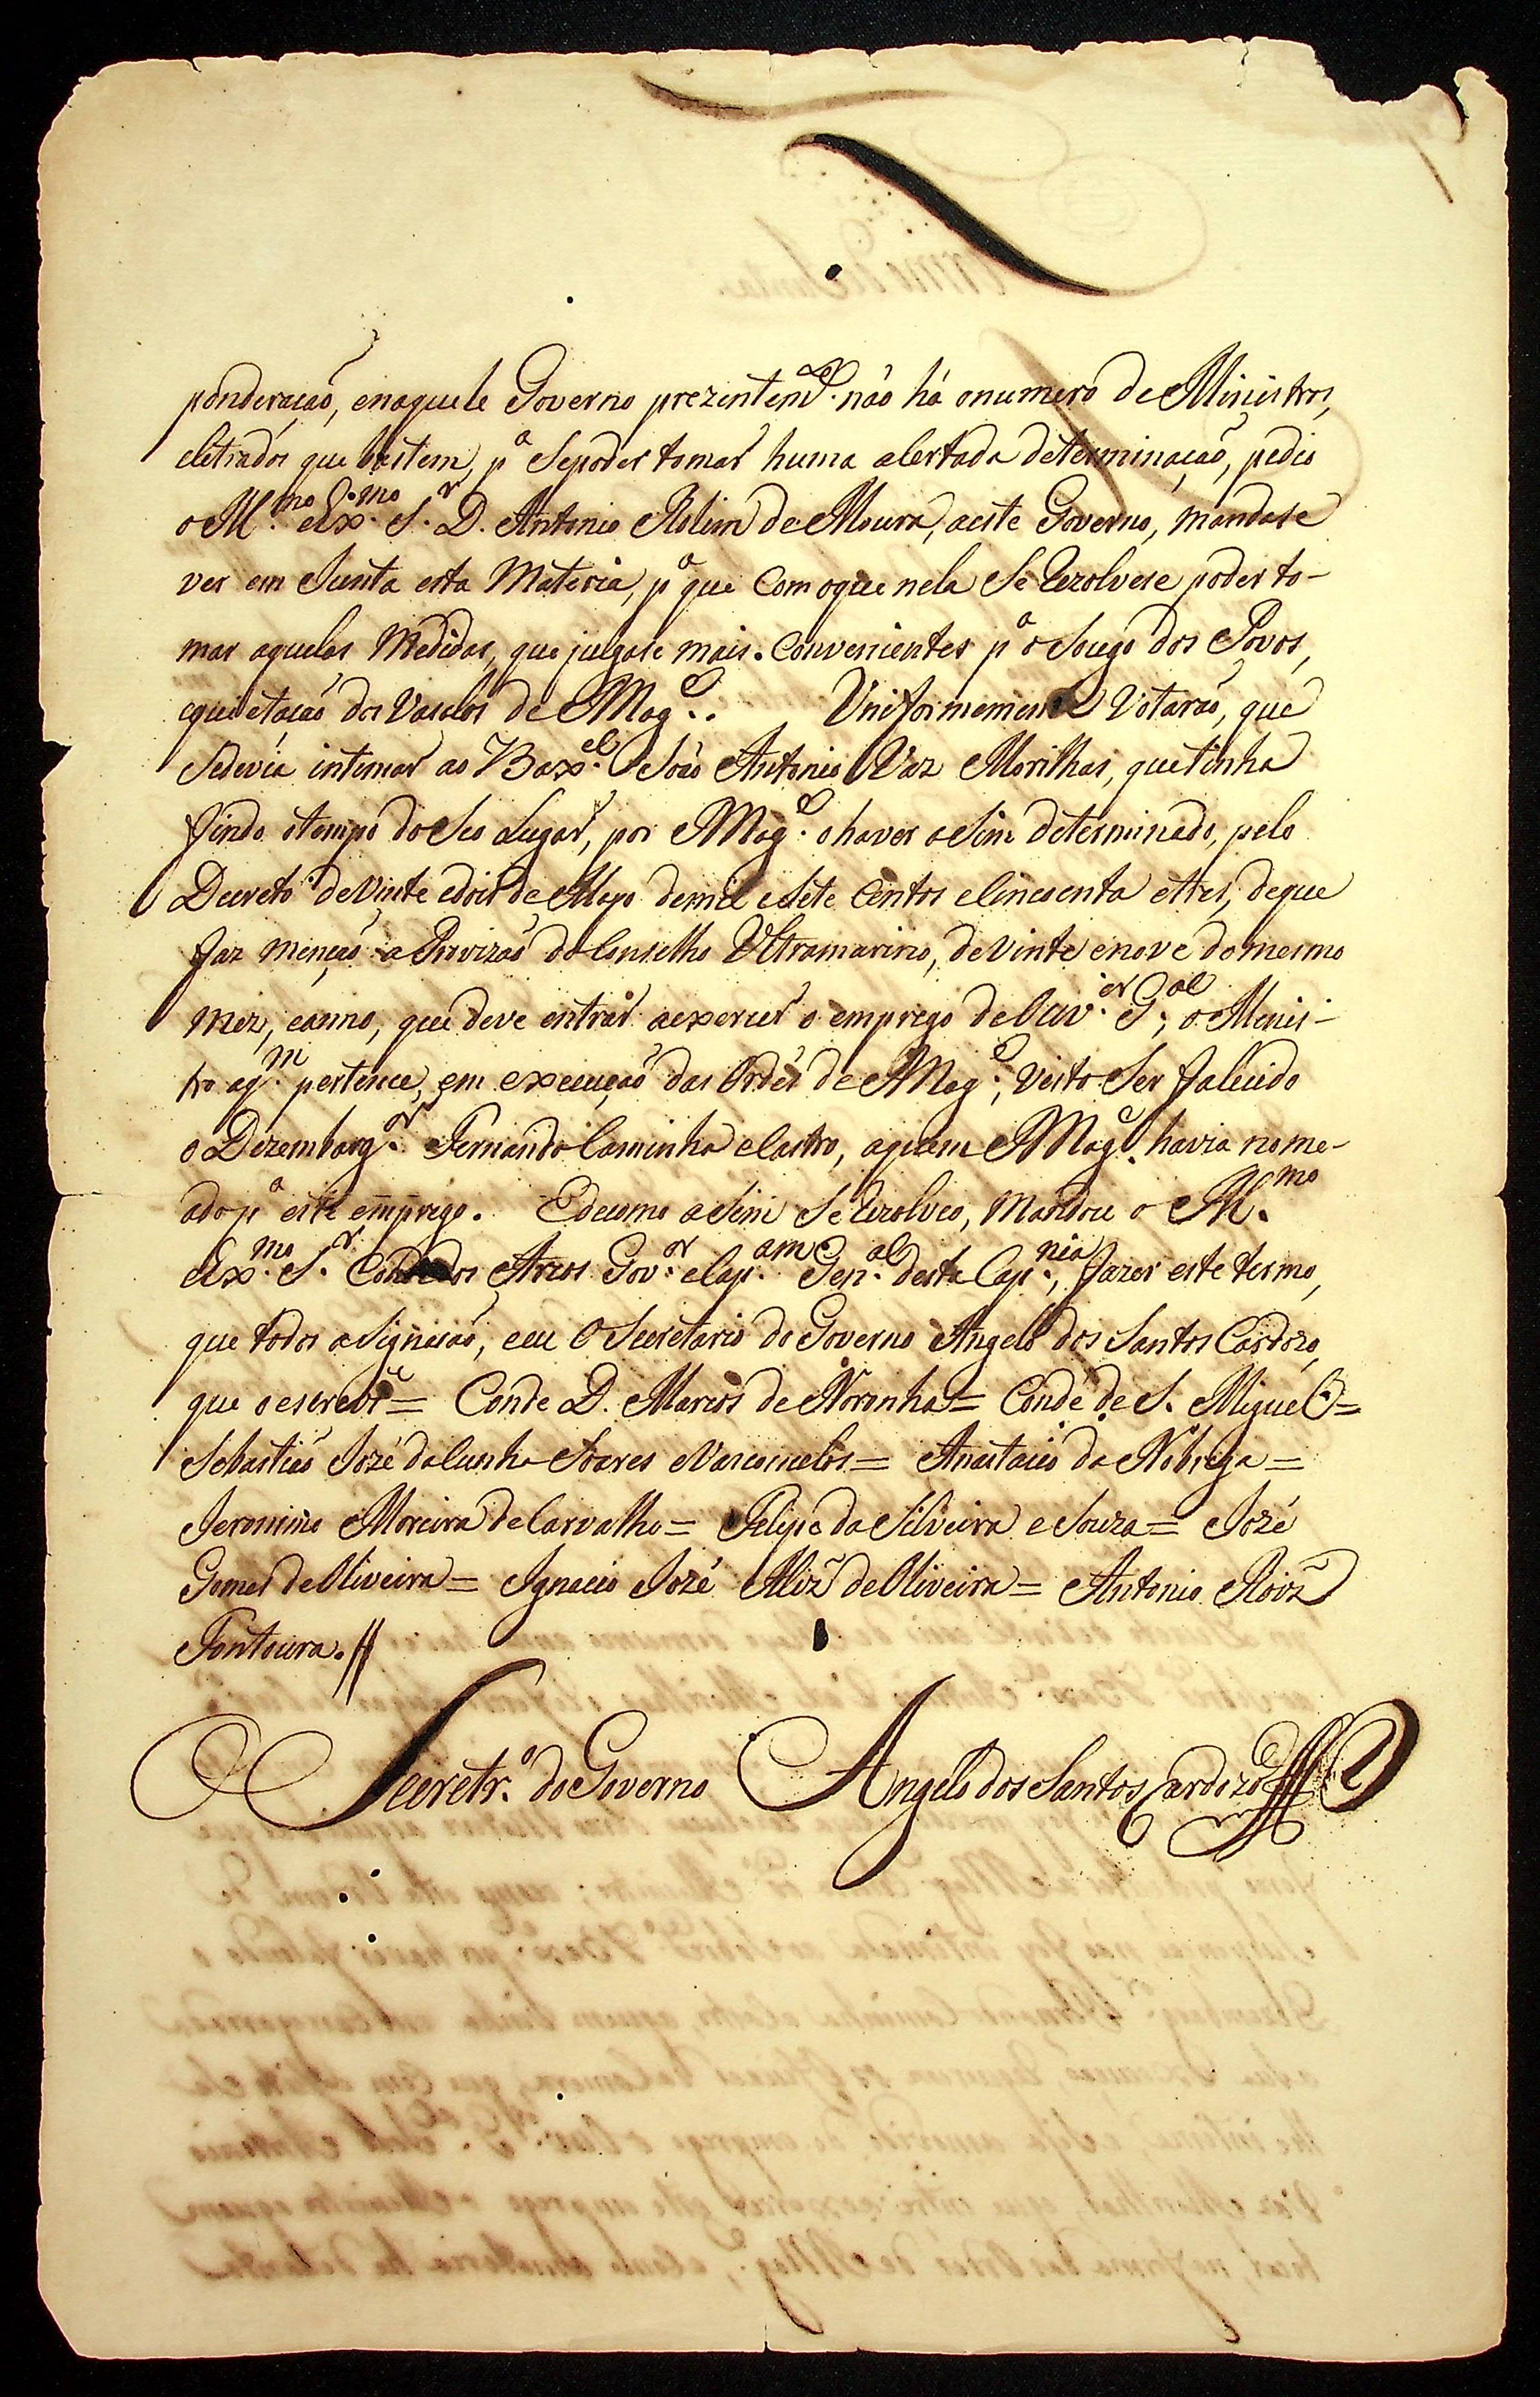 ponderação, enaquele Governo prezentemᵉ. não há onumero de Ministros,
eletrados que bastem, pᵃ Sepoder tomar huma asertada determinação, pedio
o Ill.ᵐᵒ eEx.ᵐᵒ S.ʳ D. Antonio Rolim de Moura, aeste Governo, mandase
ver em Junta esta Materia, pᵃ que Com oque nela Se Rezolvese poder to-
mar aquelas Medidas, que julgase mais. Convenientes pᵃ o Socego dos Povos,
equietação dos Vasalos de S Mag.ᵉ. Uniformemente Votarão, que
Sedevia intimar ao Bax.ᵉˡ João Antonio Vaz Morilhas, que tinha
findo otempo do Seo Lugar, por S Mag.ᵉ o haver aSim determinado, pelo
Decreto de Vinte edois de Mayo demil eSete Centos eCincoenta etres, deque
faz menção a Provizão do Conselho Ultramarino, de Vinte enove do mesmo
mez, eanno, que deve entrar aexercer o emprego de Ouv.ᵒʳ G.ᵃˡ, o Minis-
tro aq.ᵐ pertence, em execução das Ordẽs de S Mag.ᵉ, Visto Ser falecido
o Dezembarg.ᵒʳ Fernando Caminha eCastro, aquem S Mag.ᵉ havia nome-
ado pᵃ este emprego. Edecomo aSim Se Rezolveo, Mandou o Ill.ᵐᵒ
eEx.ᵐᵒ S.ʳ Conde dos Arcos Gov.ᵒʳ eCap.ᵃᵐ Gen.ᵃˡ desta Cap.ⁿⁱᵃ, fazer este termo,
que todos aSignarão, eeu O Secretario do Governo Angelo dos Santos Cardozo,
que o escrevi = Conde D. Marcos de Noronha = Conde de S. Miguel =
Sebastião Jozé da Cunha Soares eVasconcelos = Anastacio da Nobrega =
Jeronimo Moreira de Carvalho = Felipe da Silveira e Souza = Jozé
Gomes de Oliveira = Ignacio Jozé Alvz̃ de Oliveira = Antonio Roiz̃
Fontoura.//
O Secretr.º do Governo Angelo dos Santos Cardozo